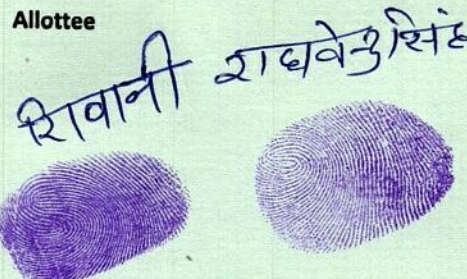 Allottee
शिवानी राघवेन्द्रसिंह